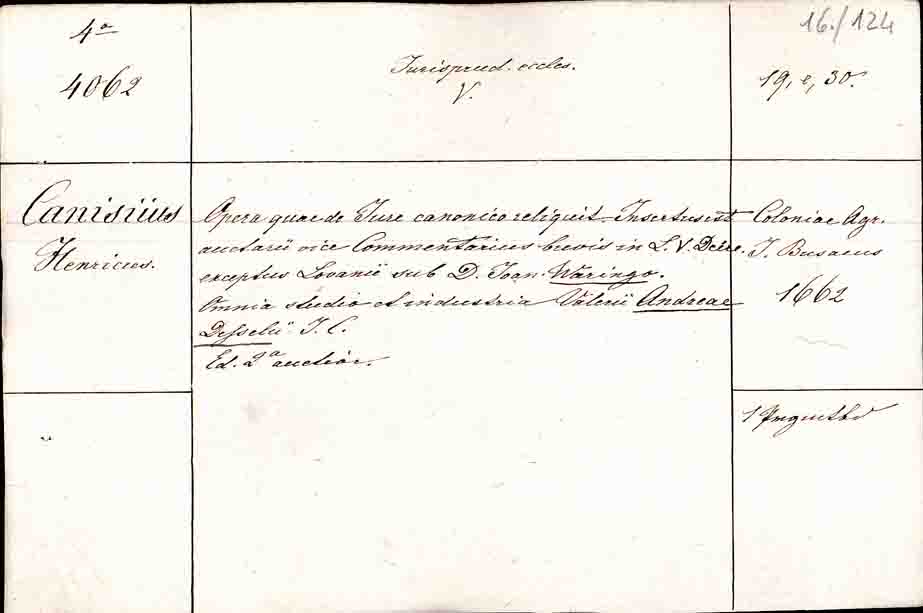 4a
4062
Jurisprud. eccles.
V.
16./124
19, e, 30.
Canisius
Henricus.
Opera quae de Jure canonico reliquit. Insertus est
auctarii vice Commentarius brevis in L. V. Decre.
exceptus Lovanii sub D. Joan. Waringo.
Omnia studio et industria Valerii Andreae
Desselii J. C.
Ed. 2a auctior.
Coloniae Agr.
J. Busaeus
1662
1